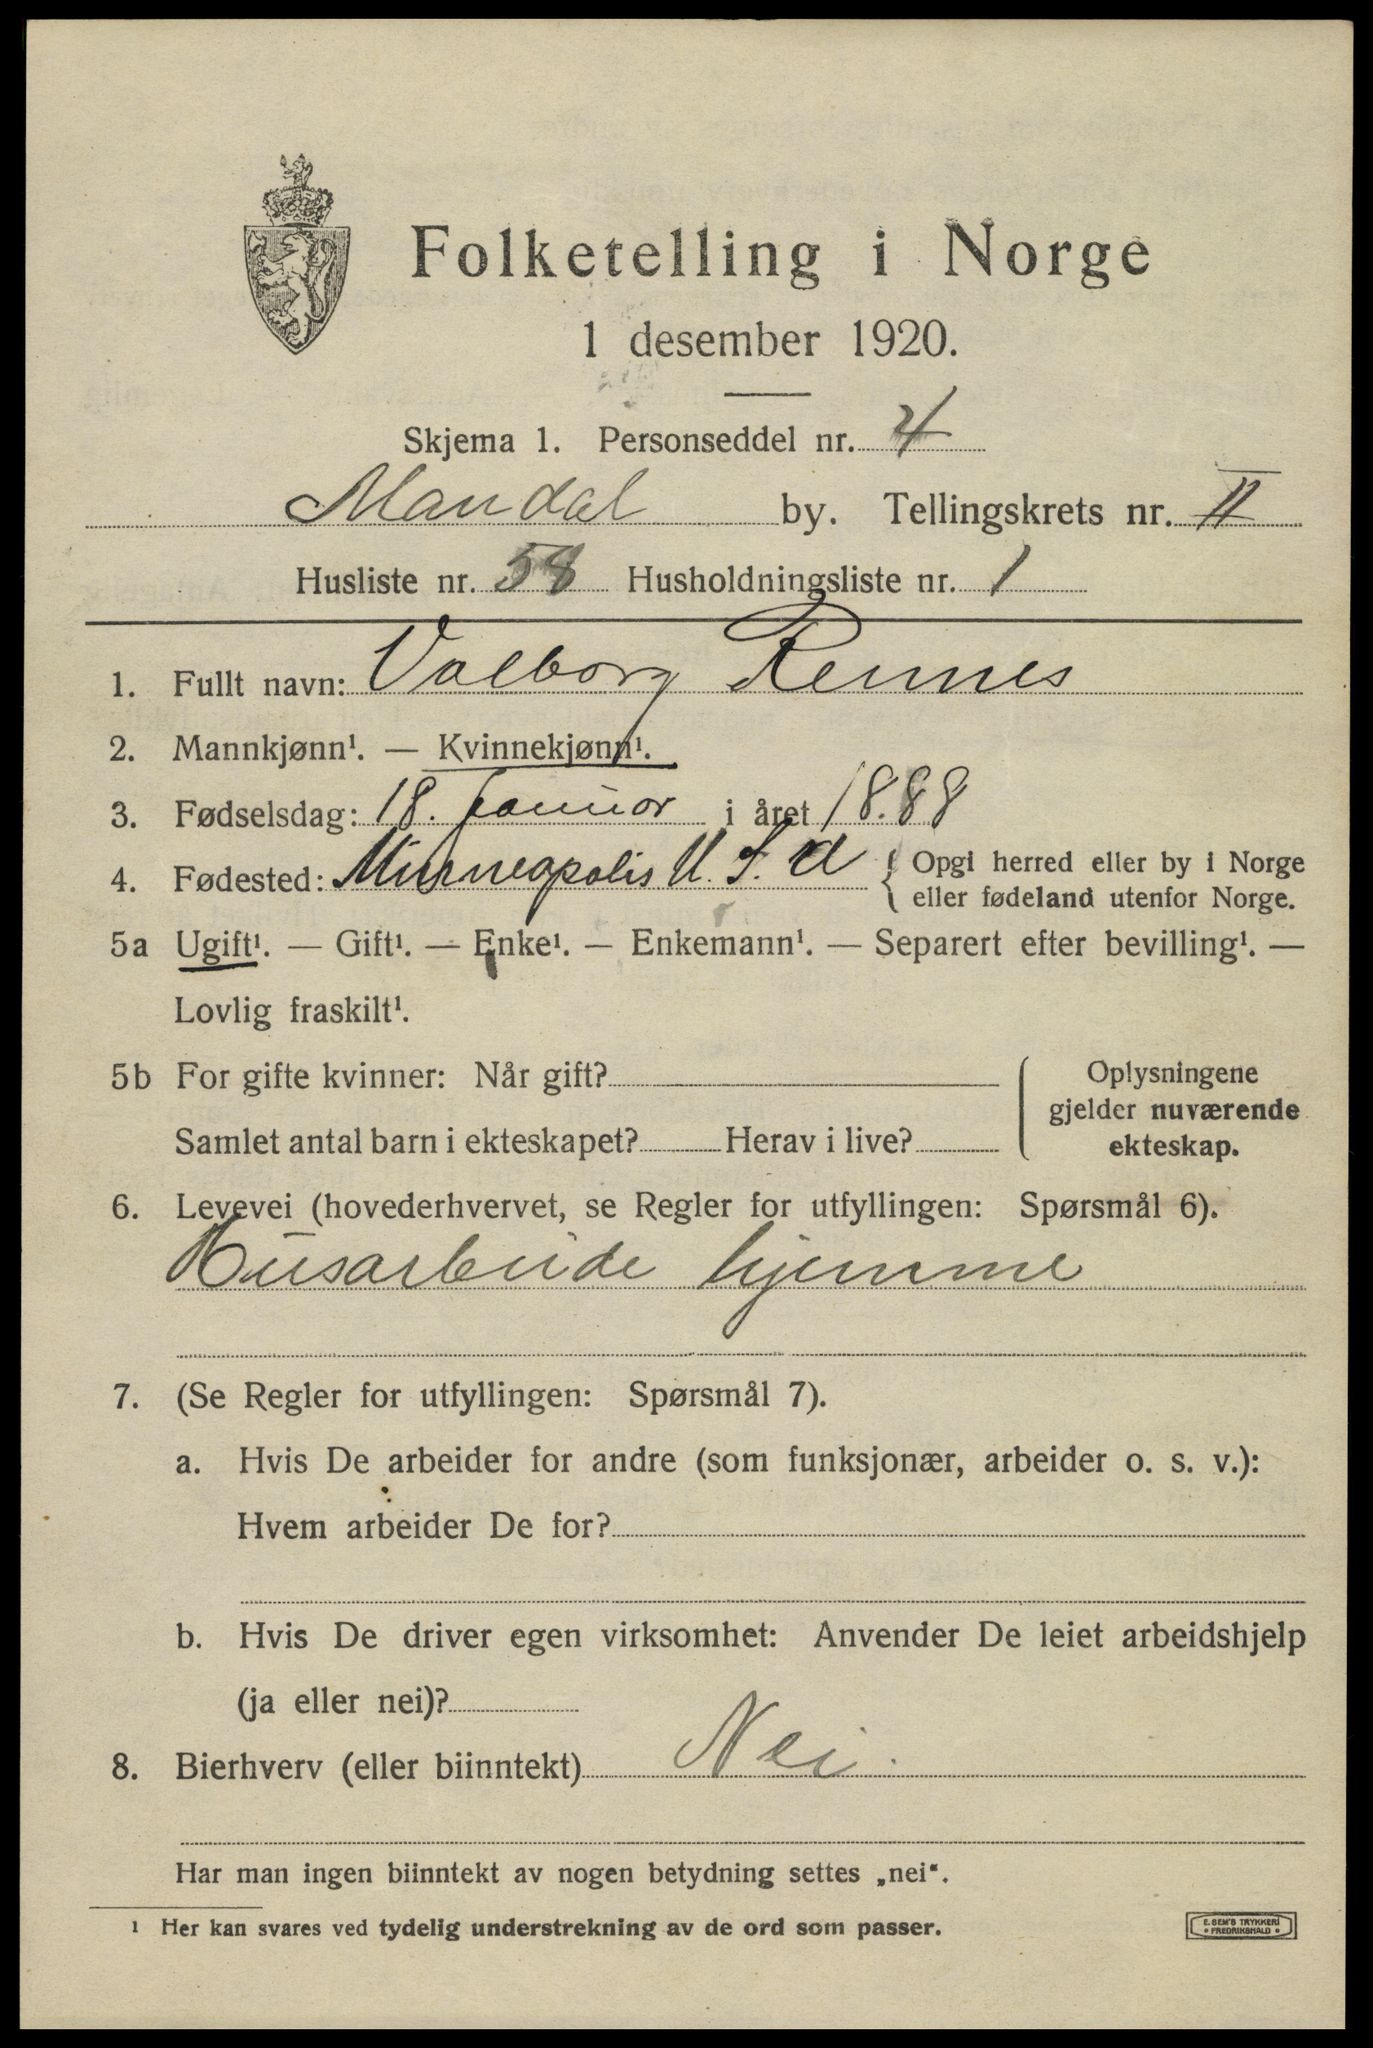 Folketelling i Norge
1 desember 1920.
Skjema 1. Personseddel nr. 4
Mandal by. Tellingskrets nr. II
Husliste nr. 58 Husholdningsliste nr. 1
1. Fullt navn: Valborg Rennes
2. Mannkjønn¹. — Kvinnekjønn¹.
3. Fødselsdag: 18. Januar i året 1888
4. Fødested: Minneapolis U. S. A { Opgi herred eller by i Norge
eller fødeland utenfor Norge.
5a Ugift¹. — Gift¹. — Enke¹. — Enkemann¹. — Separert efter bevilling¹. —
Lovlig fraskilt¹.
5b For gifte kvinner: Når gift?
Samlet antal barn i ekteskapet? Herav i live?
Oplysningene
gjelder nuværende
ekteskap.
6. Levevei (hovederhvervet, se Regler for utfyllingen: Spørsmål 6).
Husarbeide hjemme
7. (Se Regler for utfyllingen: Spørsmål 7).
a. Hvis De arbeider for andre (som funksjonær, arbeider o. s. v.):
Hvem arbeider De for?
b. Hvis De driver egen virksomhet: Anvender De leiet arbeidshjelp
(ja eller nei)?
8. Bierhverv (eller biinntekt) Nei.
Har man ingen biinntekt av nogen betydning settes „nei“.
¹ Her kan svares ved tydelig understrekning av de ord som passer.
E. SEM'S TRYKKERI
FREDRIKSHALD